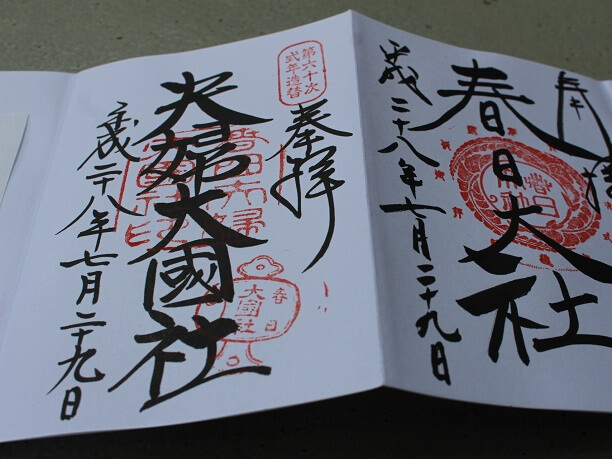 奉拝
春日大社
平成二十八年七月二十九日
第六十次
式年造替
奉拝
夫婦大國社
春日
大國社
平成二十八年七月二十九日